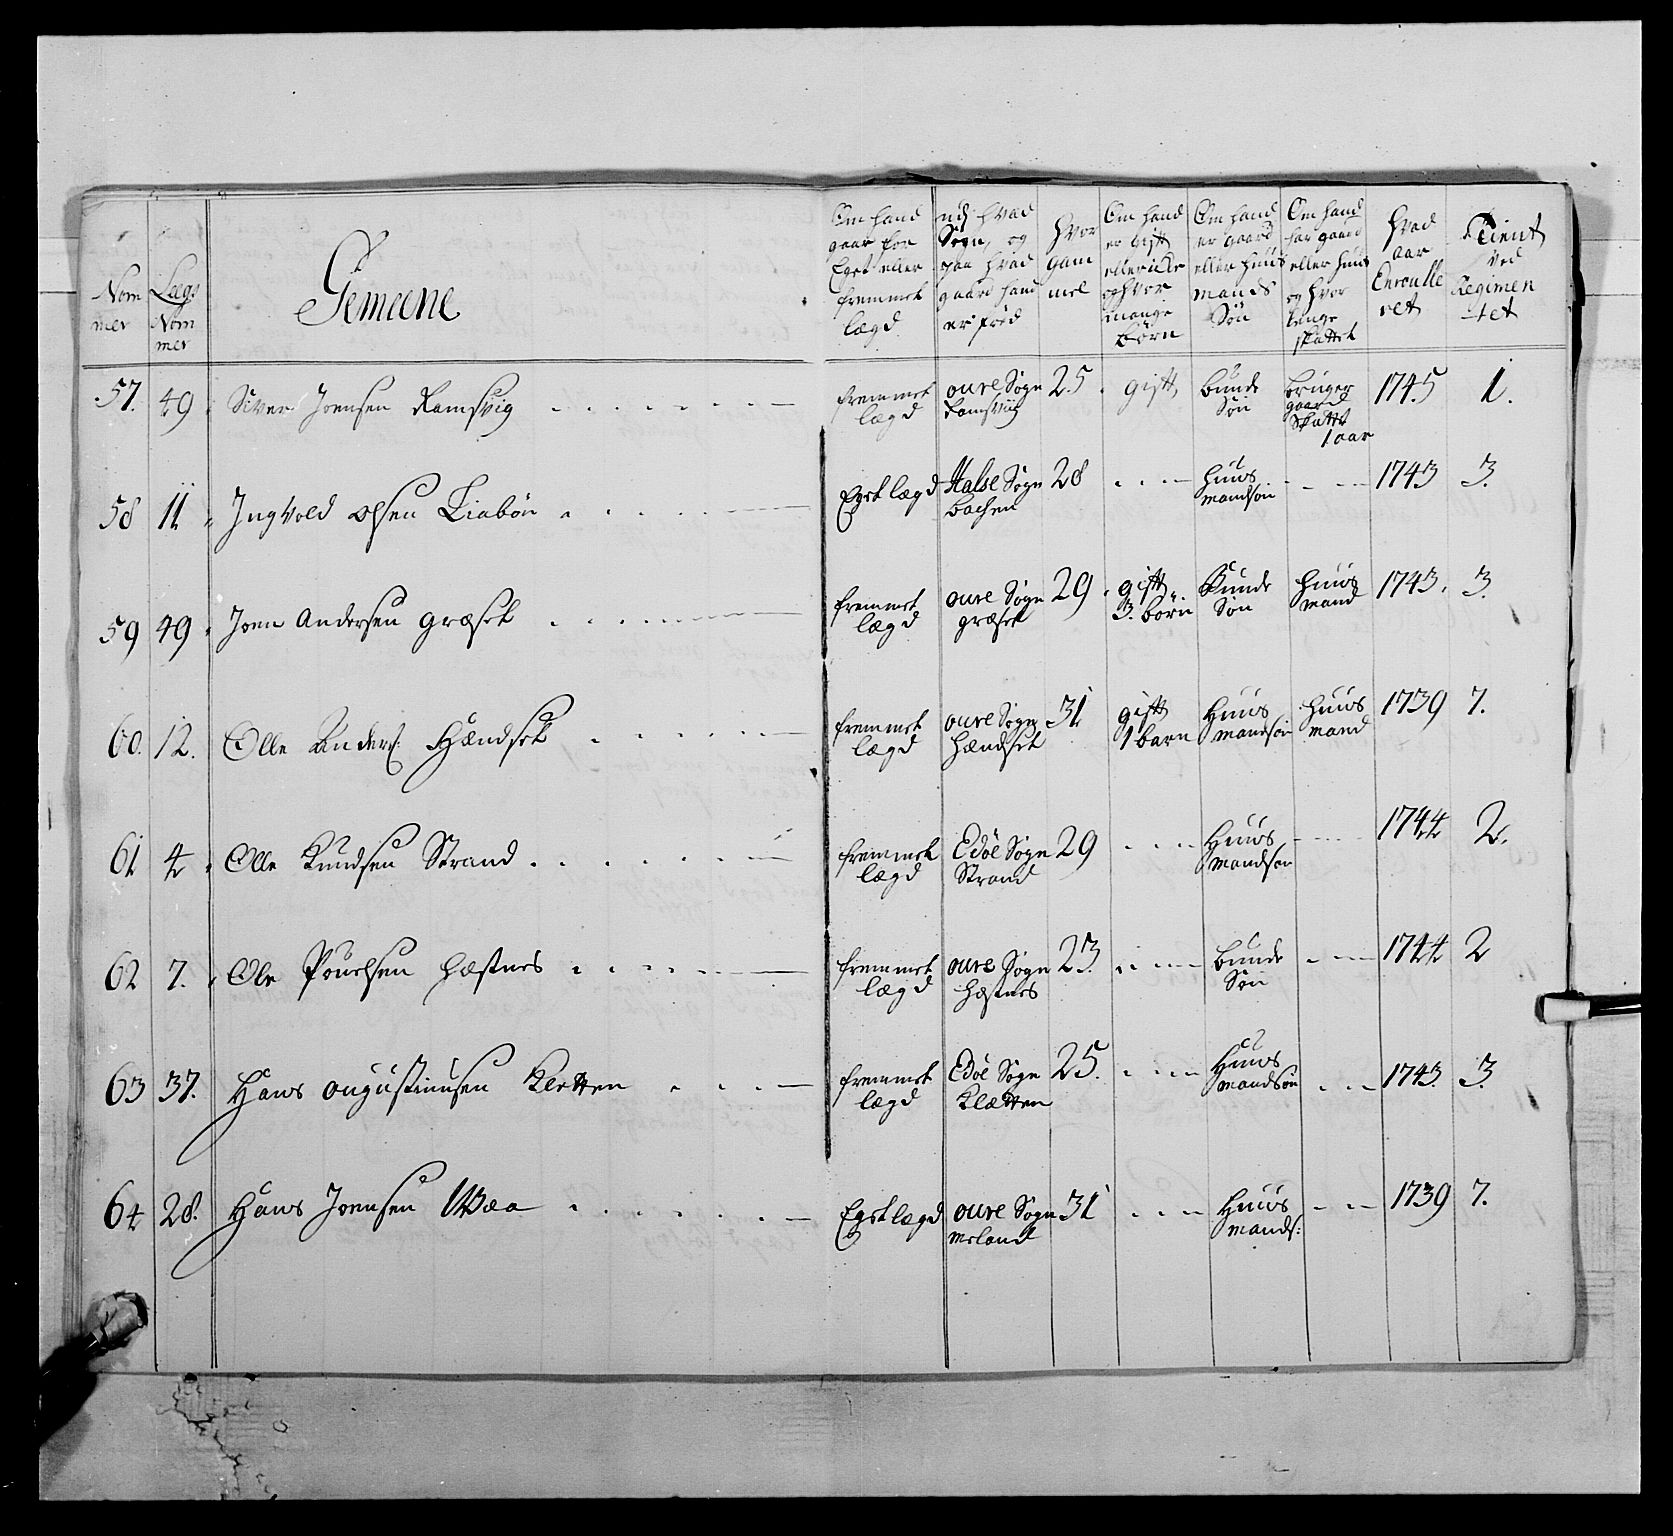 Nom
mer
Lægs
Nom
mer
Gemeene
Om hand
gaar for
Eget eller
fremmet
lægd
udj hvad
Sogn, og
paa hvad
gaard hand
er fød
hvor
gam
mel
Om hand
er gift
eller icke
og hvor
mange
børn
Om hand
er gaard
eller huus
mands
Søn
Om hand
har gaard
eller huus
og hvor
lenge
skattet
hvad
aar
Enroulle
ret
Tient
ved
Regimen
tet
57. 49 Siver Joensen Ramsvig fremmet lægd oure Sogn Ramsviig 25. gift bunde Søn bruger gaard Skattet 1 aar 1745 1.
58 11 Ingvold olsen Liabön Eget lægd Halse Sogn bachen 28 huus mandsön 1743 3.
59 49 Joen Andersen græset fremmet lægd oure Sogn græset 29 gift 3. börn Bunde Søn huus mand 1743. 3.
60. 12. Olle Anders: Hændset fremmet lægd oure Sogn Hændset 31 gift 1 barn Huus mandsön huus mand 1739 7.
61 4 Olle Knudsen Strand fremmet lægd Edöe Sogn Strand 29 Huus mandsön 1744 2.
62 7. Ole Pouelsen Hæstnes fremmet lægd oure Sogn Hæstnes 23. bunde Søn 1744 2
63 37. Hans Augustinusen Kletten fremmet lægd Edöe Sogn Klætten 25. Huus mandsön 1743. 3.
64 28. Hans Joensen Waa Eget lægd oure Sogn meland 31 Huus mands: 1739 7.